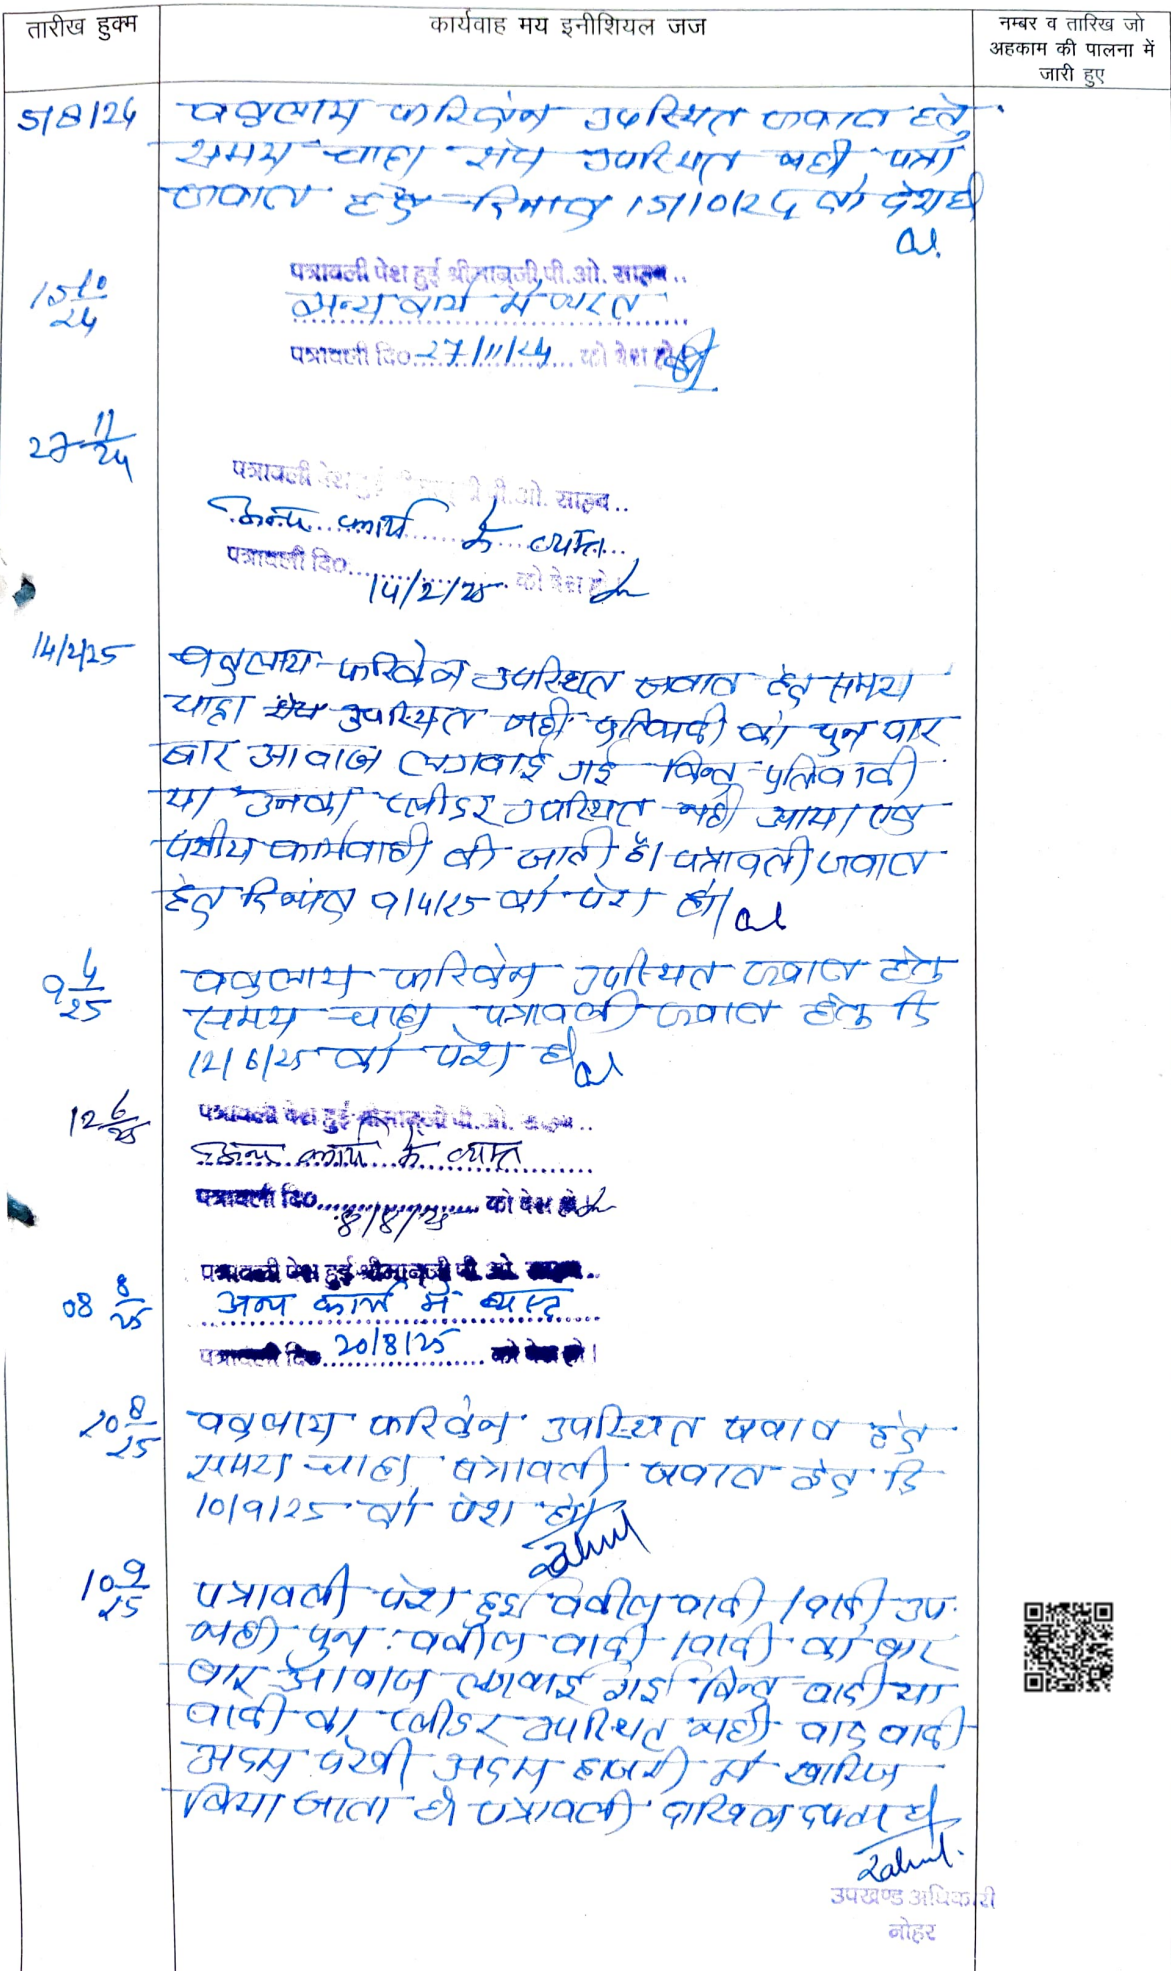 तारीख हुक्म
कार्यवाह मय इनीशियल जज
नम्बर व तारिख जो
अहकाम की पालना में
जारी हुए
5/8/24
वकुलाय फरिकेन उपस्थित जवाब हेतु
समय चाहा शेष उपस्थित नही पत्रा
जवाब हेतु दिनांक 15/10/24 को पेश हो
15 10/24
पत्रावली पेश हुई श्रीमान्‌जी पी.ओ. साहब..
अन्य कार्य में व्यस्त
पत्रावली दि० 27/11/24 को पेश हो
27 11/24
पत्रावली पेश हुई श्रीमान्‌जी पी.ओ. साहब..
अन्य कार्य में व्यस्त
पत्रावली दि० 14/2/25 को पेश हो
14/2/25
वकुलाय फरिकेन उपस्थित जवाब हेतु समय
चाहा शेष उपस्थित नही प्रतिवादी को पुन बार
बार आवाज लगवाई गई किन्तु प्रतिवादी
या उनका प्लीडर उपस्थित नही आया एक
पक्षीय कार्यवाही की जाती है। पत्रावली जवाब
हेतु दिनांक 9/4/25 को पेश हो।
9 4/25
वकुलाय फरिकेन उपस्थित जवाब हेतु
समय चाहा पत्रावली जवाब हेतु दि
12/6/25 को पेश हो
12 6/25
पत्रावली पेश हुई श्रीमान्‌जी पी.ओ. साहब..
अन्य कार्य में व्यस्त
पत्रावली दि० 8/8/25 को पेश हो
08 8/25
पत्रावली पेश हुई श्रीमान्‌जी पी. ओ. साहब..
अन्य कार्य में व्यस्त
पत्रावली दि० 20/8/25 को पेश हो।
20 8/25
वकुलाय फरिकेन उपस्थित जवाब हेतु
समय चाहा पत्रावली जवाब हेतु दि
10/9/25 को पेश हो
10 9/25
पत्रावली पेश हुई वकील वादी / वादी उप.
नही पुन: वकील वादी / वादी को बार
बार आवाज लगवाई गई किन्तु वादी या
वादी का प्लीडर उपस्थित नही वाद वादी
अदम पैरवी अदम हाजरी में खारिज
किया जाता है पत्रावली दाखिल दफ्तर हो
उपखण्ड अधिकारी
नोहर